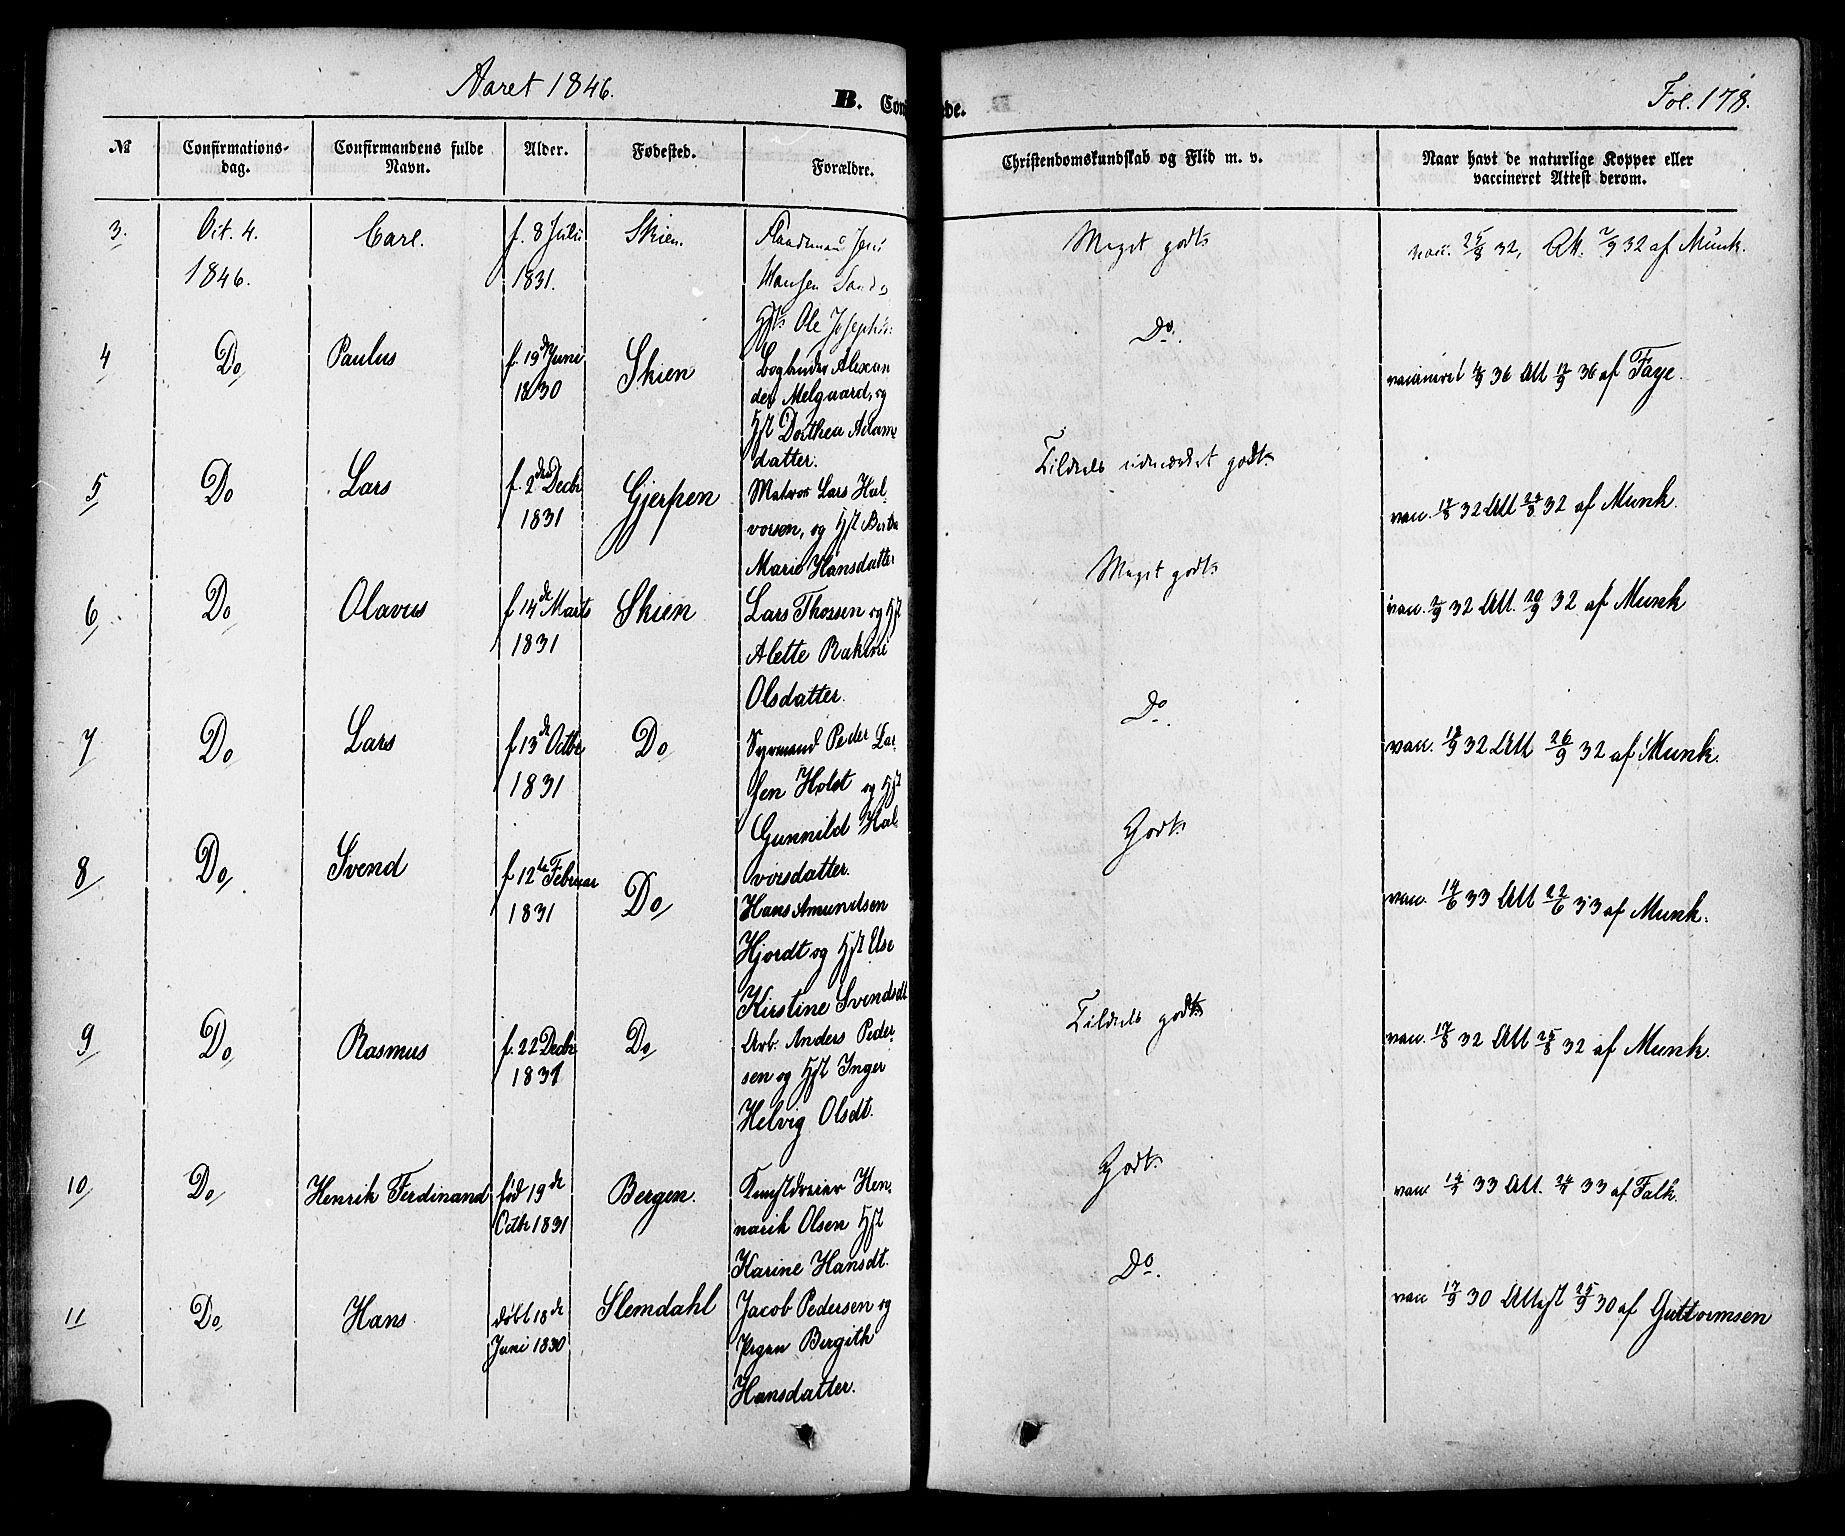 Aaret 1846.
B. Con de.
Fol. 178.
No Confirmations-dag. Confirmandens fulde Navn. Alder. Fødested. Forældre. Christendomskundskab og Flid m. v. Naar havt de naturlige Kopper eller vaccineret Attest derom.
3. Oct. 4. Carl. f. 8 Juli Skien. Meget godt vacc. 32, Att. 32 af Munk.
1846. 1831. Hansen
Hst Ole Josephin
4 Do Paulus f. 19de Juni Skien Do. vaccineret 36 Att 36 af Faye.
1830 Alexan
der Melgaard, og
Hst Dorthea Adams
datter.
5 Do Lars f. 2den Decbr Gjerpen Matros Lars Hal- Tildels udmærket godt. vacc. 17/8 32 Att 24/8 32 af Munk.
1831 vorsen, og Hst Berthe
Marie Hansdatter
6 Do Olavus f 14de Marts Skien Lars Thossen og Hst Meget godt vacc. 32 Att. 20/9 32 af Munk
1831 Alette
Olsdatter.
7 Do Lars f 13de Octbr Do Peder Lar- Do. vacc. 18/9 32 Att 26/9 32 af Munk.
1831 sen Holst og Hst
Gunnild Hal-
vorsdatter.
8 Do Svend f 12te Februar Do Godt vacc. 14/6 33 Att 22/6 33 af Munk.
1831 Hans Amundsen
Hjordt og Hst Else
Kirstine Svendsdt
9 Do Rasmus f. 22 Decbr Do Arb. Anders Peder- Tildels godt vacc. 17/8 32 Att 25/8 32 af Munk.
1831 sen og Hst Inger
Helvig Olsdt.
10 Do Henrik Ferdinand fød 19de Bergen. Hen- Godt. vacc 33 Att. 33 af Falk.
Octbr 1831 narik Olsen Hst
Karine Hansdt.
11 Do Hans døbt 18de Slemdahl Jacob Pedersen og Do. vacc 17/9 30 Attest 25/9 30 af Guttormsen
Juni 1830 Pigen Bergith
Hansdatter.